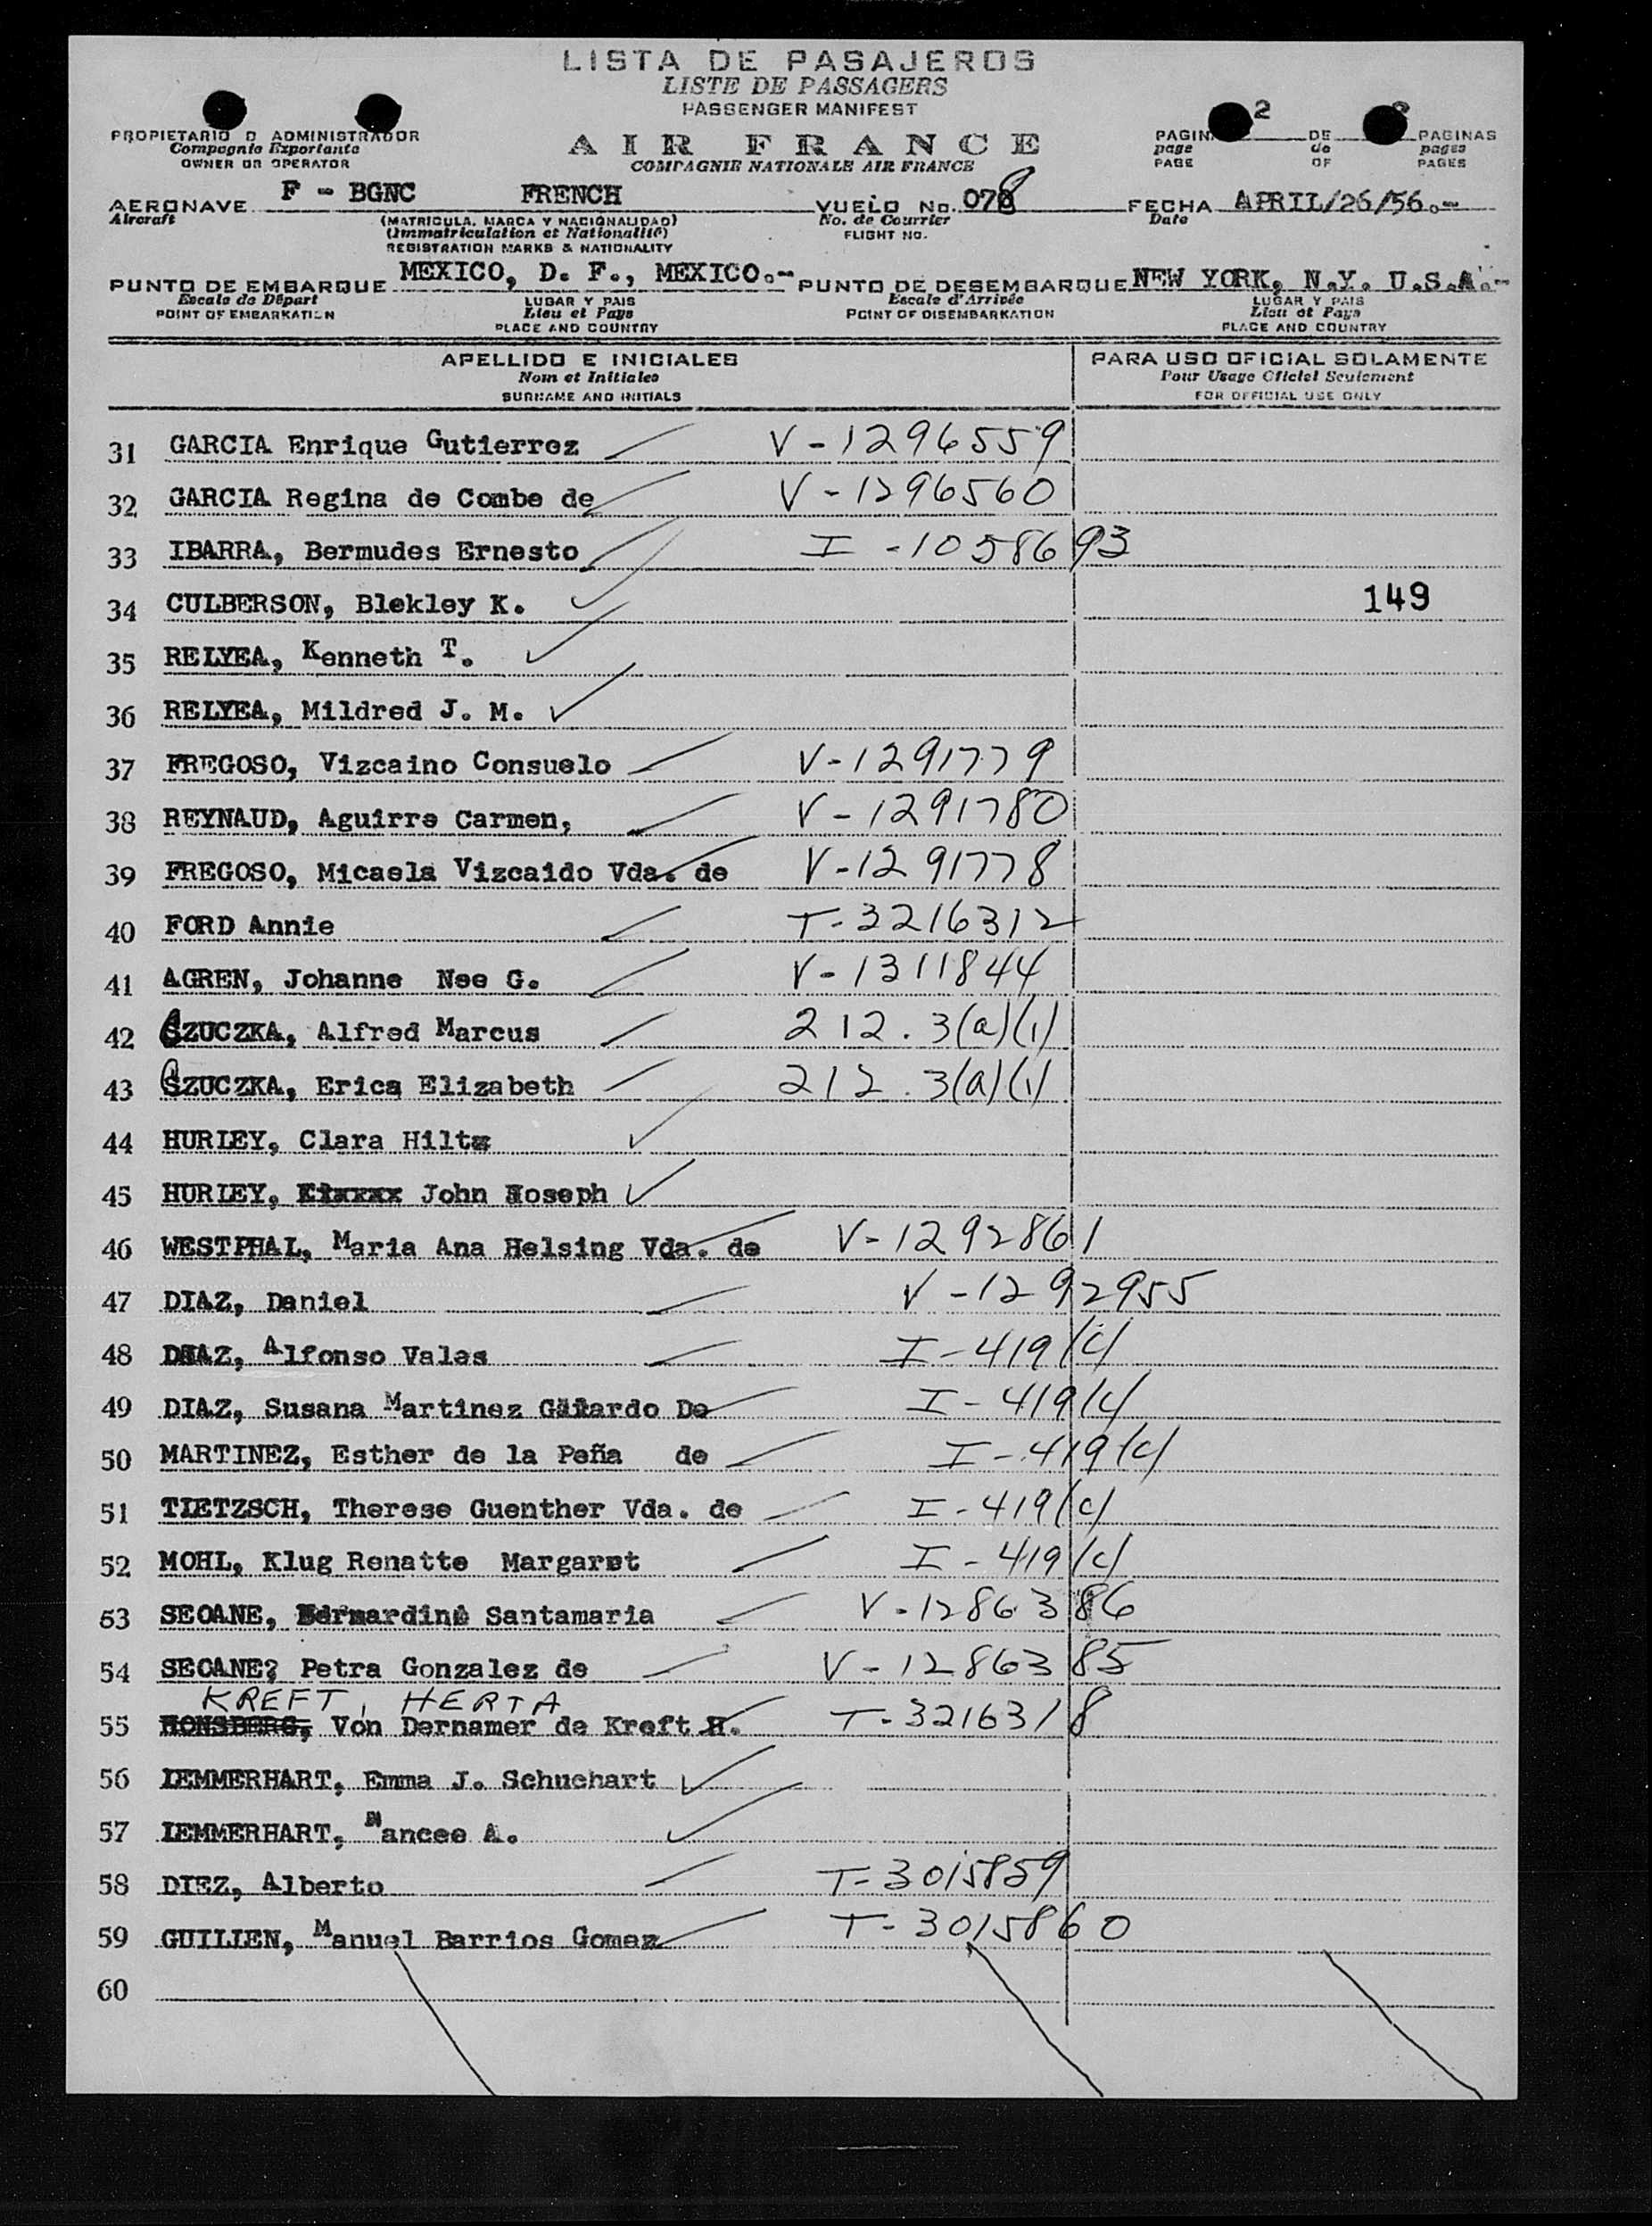 LISTA DE PASAJEROS
LISTE DE PASSAGERS
PASSENGER MANIFEST
PROPIETARIO O ADMINISTRADOR
Compagnie Exportante
OWNER OR OPERATOR
AIR FRANCE
COMPAGNIE NATIONALE AIR FRANCE
PAGIN 2 DE PAGINAS
page de pages
PAGE OF PAGES
AERONAVE F - BGNC FRENCH VUELO No. 078 FECHA APRIL/26/56.-
Aircraft (MATRICULA, MARCA Y NACIONALIDAD) No. de Courrier Date
(Immatriculation et Nationalité) FLIGHT NO.
REGISTRATION MARKS & NATIONALITY
PUNTO DE EMBARQUE MEXICO, D. F., MEXICO.- PUNTO DE DESEMBARQUE NEW YORK, N.Y. U.S.A.-
Escale de Départ LUGAR Y PAIS Escale d'Arrivée LUGAR Y PAIS
POINT OF EMBARKATION Lieu et Pays POINT OF DISEMBARKATION Lieu et Pays
PLACE AND COUNTRY PLACE AND COUNTRY
APELLIDO E INICIALES PARA USO OFICIAL SOLAMENTE
Nom et Initiales Pour Usage Officiel Seulement
SURNAME AND INITIALS FOR OFFICIAL USE ONLY
31 GARCIA Enrique Gutierrez V-1296559
32 GARCIA Regina de Combe de V-1296560
33 IBARRA, Bermudes Ernesto I-1058693
34 CULBERSON, Blekley K. 149
35 RELYEA, Kenneth T.
36 RELYEA, Mildred J. M.
37 FREGOSO, Vizcaino Consuelo V-1291779
38 REYNAUD, Aguirre Carmen, V-1291780
39 FREGOSO, Micaela Vizcaido Vda. de V-1291778
40 FORD Annie T-3216312
41 AGREN, Johanne Nee G. V-1311844
42 SZUCZKA, Alfred Marcus 212.3(a)(1)
43 SZUCZKA, Erica Elizabeth 212.3(a)(1)
44 HURLEY, Clara Hiltz
45 HURLEY, John Joseph
46 WESTPHAL, Maria Ana Helsing Vda. de V-1292861
47 DIAZ, Daniel V-1292955
48 DIAZ, Alfonso Vales I-419(c)
49 DIAZ, Susana Martinez Gallardo De I-419(c)
50 MARTINEZ, Esther de la Peña de I-419(c)
51 TIETZSCH, Therese Guenther Vda. de I-419(c)
52 MOHL, Klug Renatte Margaret I-419(c)
53 SEOANE, Bernardino Santamaria V-1286386
54 SEOANE? Petra Gonzalez de V-1286385
KREFT, HERTA
55 HONSBERG, Von Dernamer de Kreft H. T-3216318
56 LEMMERHART, Emma J. Schuchart
57 LEMMERHART, Nancee A.
58 DIEZ, Alberto T-3015859
59 GUILLEN, Manuel Barrios Gomez T-3015860
60